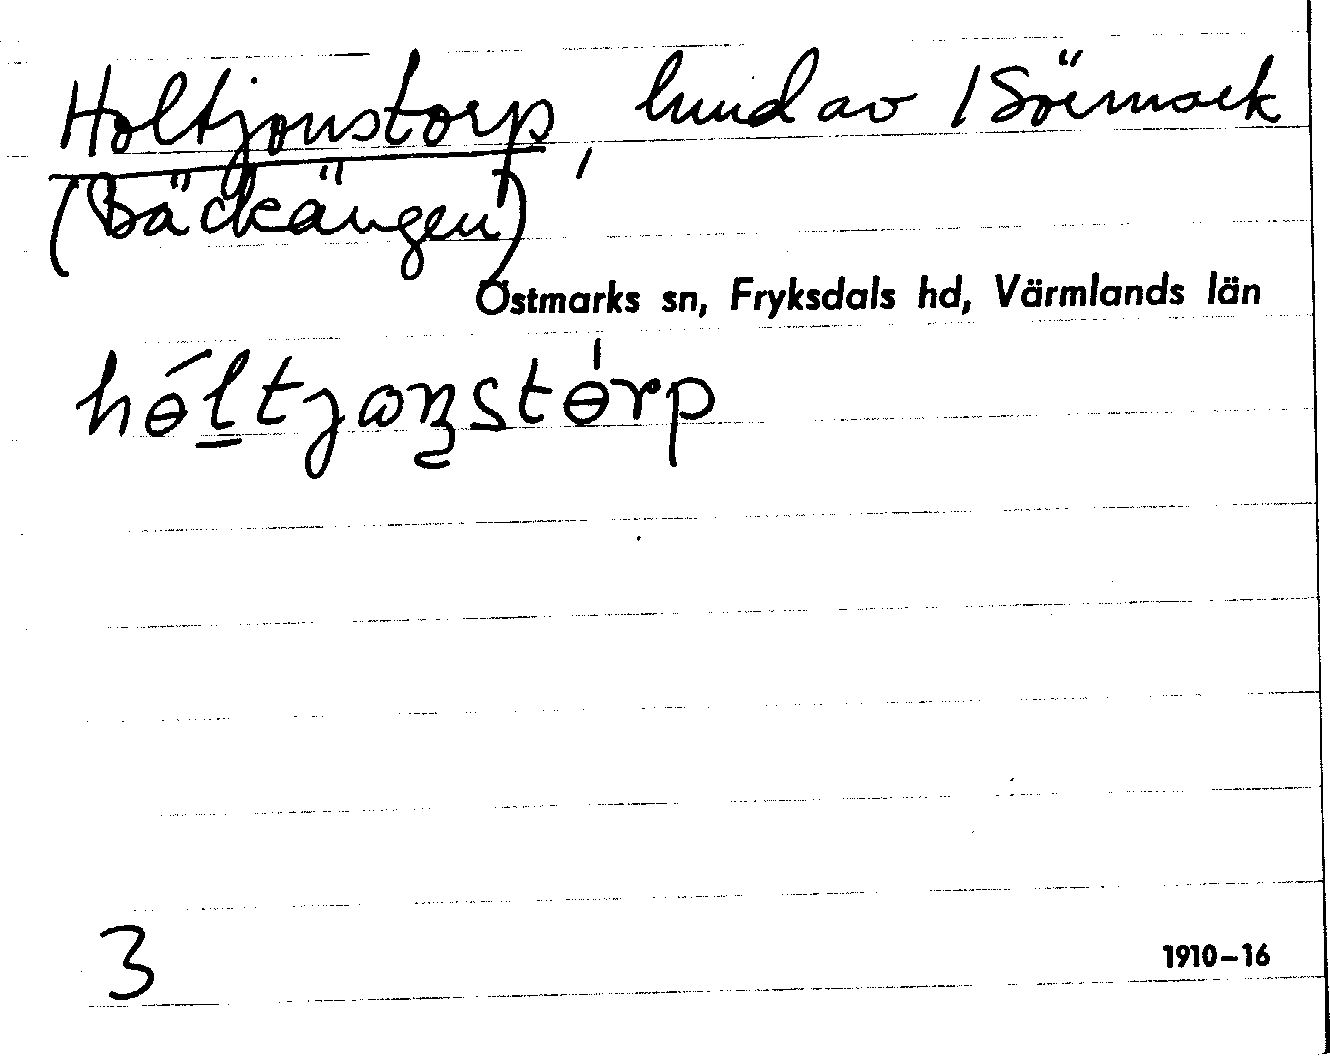 Holtjonstorp, lund av 1 Sörmark
(Bäckängen)
Östmarks sn, Fryksdals hd, Värmlands län
hɵ́ltjɷnstɵrp
3
1910–16